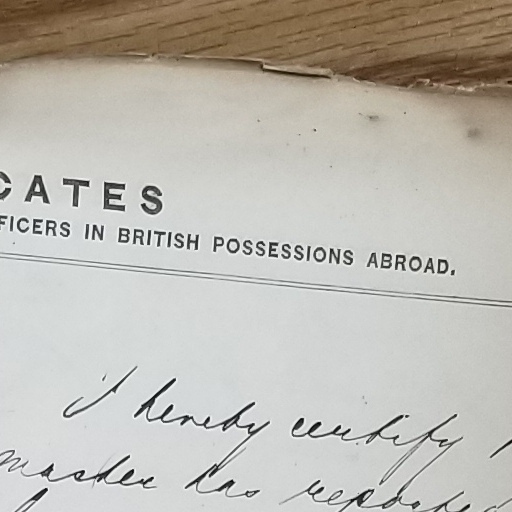 CATES
FICERS IN BRITISH POSSESSIONS ABROAD.
I hereby certify
master has reported